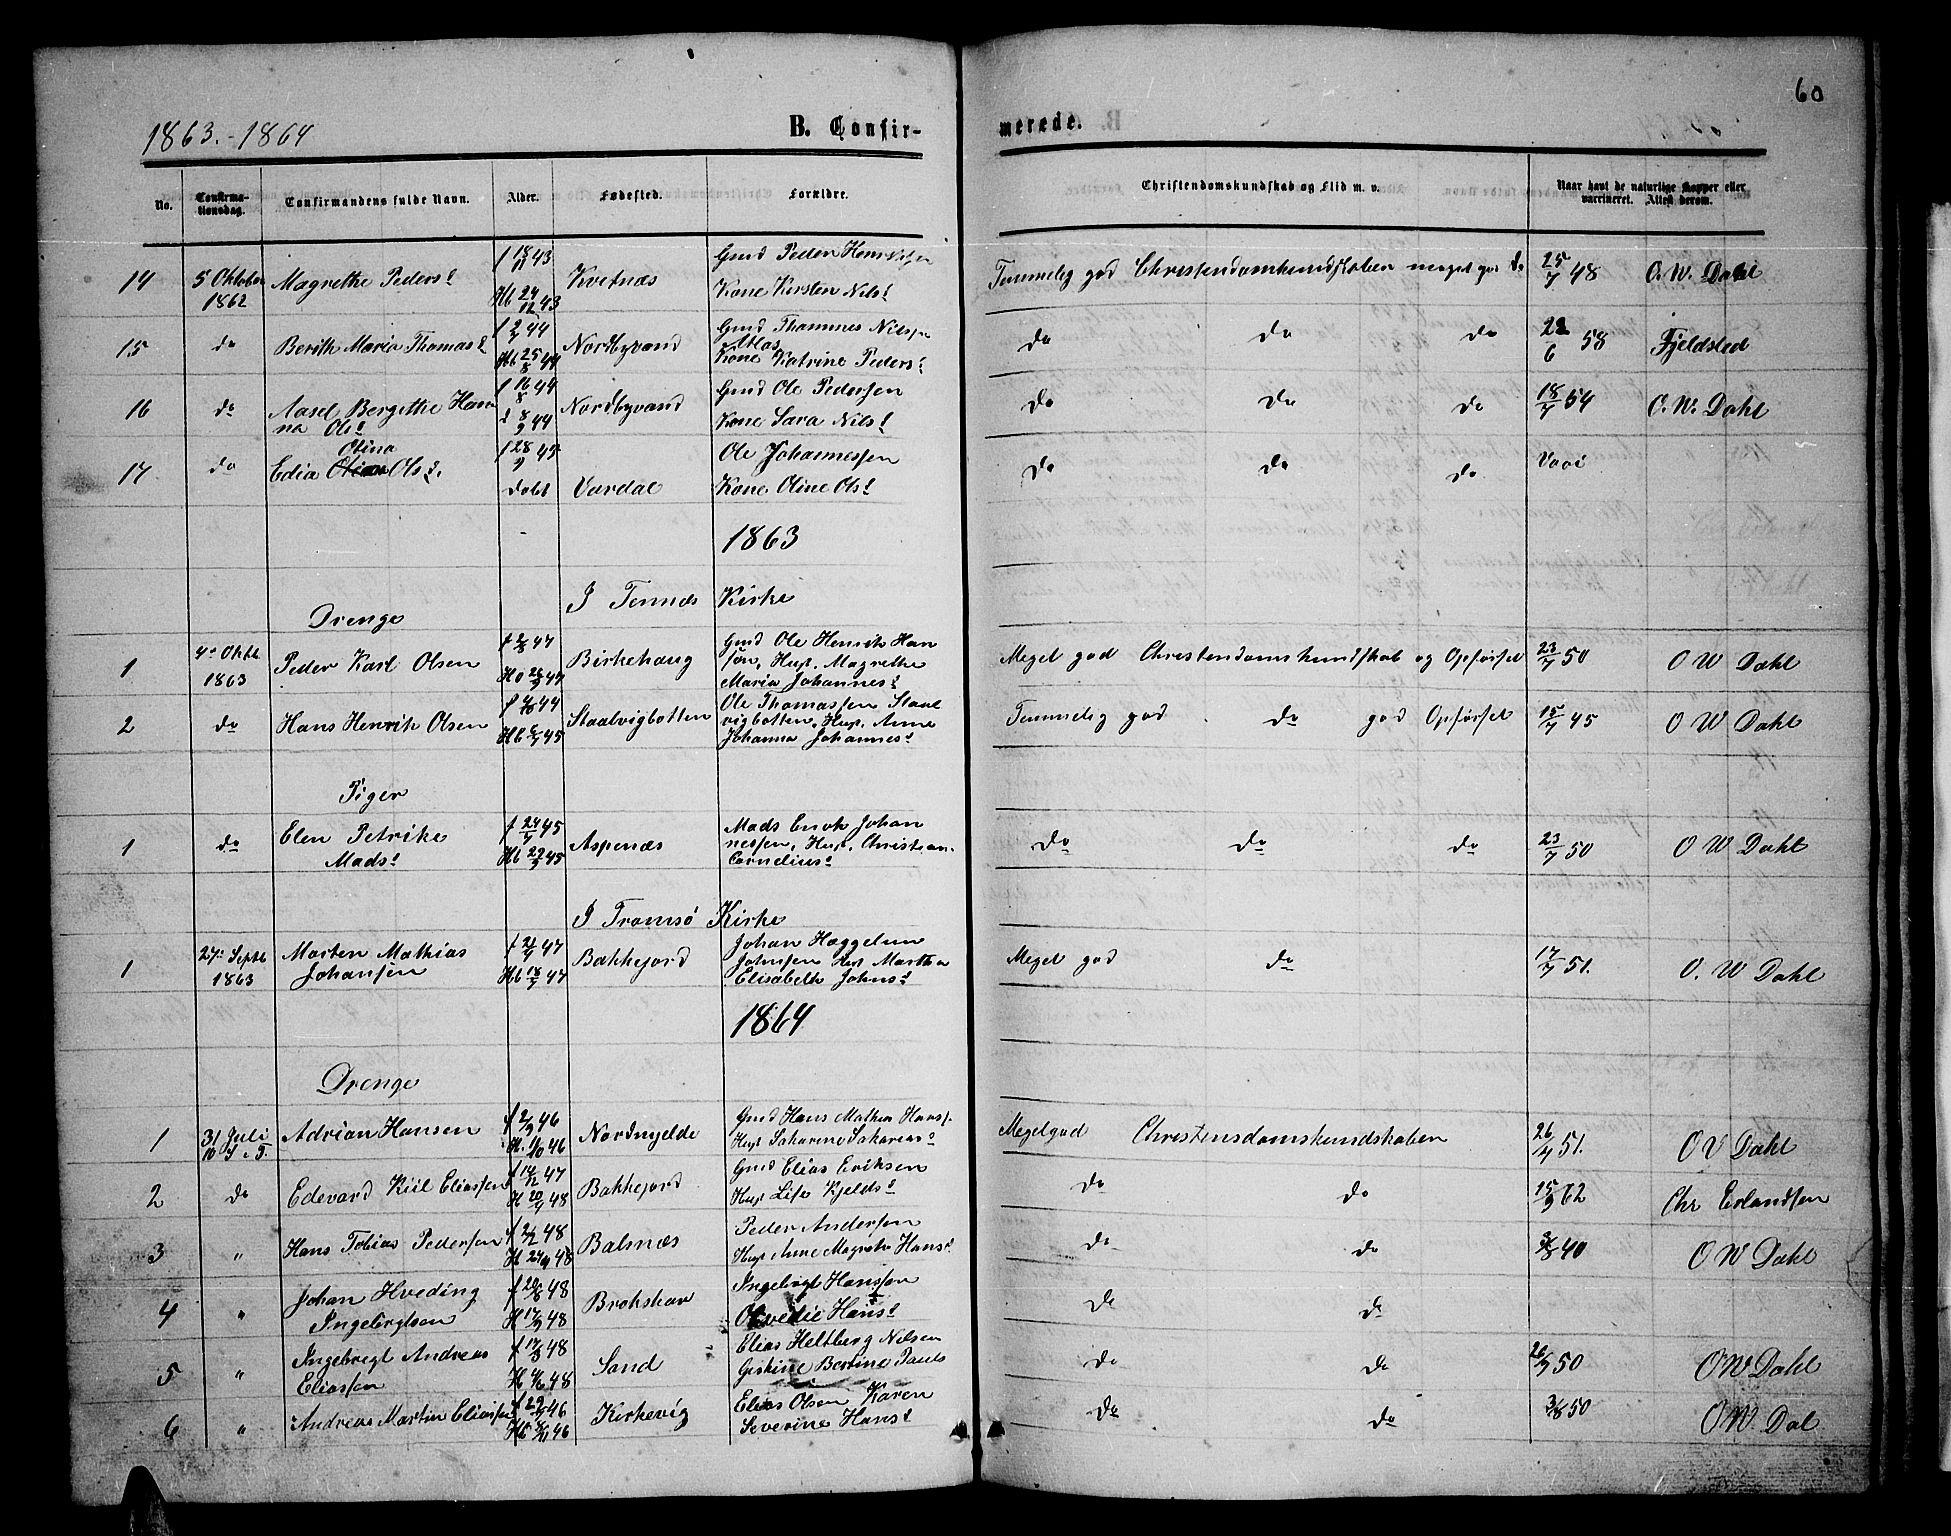 60
1863.-1864 B. Confir- merede.
No. Confirmationsdag. Confirmandens fulde Navn. Alder. Fødested. Forældre. Christendomskundskab og Flid m. v. Naar havt de naturlige Kopper eller vaccineret. Attest derom.
14 5 Oktober 1862 Magrethe Peders: f 18/11 43 Hb 24/12 43 Kvetnæs Gmd Peder Hans Nilsen Kone Kirsten Nils: Temmelig god Christendomkundskaben meget god do 25/7 48 O. W. Dahl
15 do Berith Maria Thomas: f 2/7 44 Hb 25/8 44 Nordbyvand Gmd Thommes Nilsen Atlas Kone Katrine Peders: do do do 22/6 58 Fjeldsted
16 do Aasel Bergethe Hanna Ols: f 16/8 44 d 8/9 44 Nordbyvand Gmd Ole Pedersen Kone Sara Nils: do do do 18/7 54 O. W. Dahl
17 do Edia Otina Ols: f 28/9 45 dobt Vardal Ole Johannessen Kone Oline Ols: do do do
1863
I Tennæs Kirke
Drenge
1 4de Oktb 1863 Peder Karl Olsen 47 Birkehaug Gmd Ole Henrik Hansøn, Hup. Magrethe Maria Johannes: Meget god Christendomskundskab og Opførsel 23/7 50 O W Dahl
2 do Hans Henrik Olsen 44 45 Staalvigbotten Ole Thomassen Staalvigbotten, Hup. Anne Johanna Johannes: Temmelig god do god Opførsel 15/7 45 O W Dahl
Piger
1 do Elen Petrike Mads: f 24/7 45 Hb 29/9 45 Aspenæs Mads Enok Johannessen, Hup. Christian Cornelius: do do do 23/7 50 O W Dahl
I Tromsø Kirke
1 27de Septb 1863 Morten Mathias Johansen 47 Hb 18/7 47 Bakkejord Johan Hæggelun Johnsen Hup Martha Elisabeth Johns: Meget god do 17/7 51. O. W Dahl
1864
Drenge
1 31 Juli Adrian Hansen f 2/9 46 H. 1/10 46 Nordnylde Gmd Hans Mathea Hans. Hup Sakarine Sakarias: Meget god Christensdomskundskaben 26/4 51. O V Dahl
2 do Edevard Kiil Eliassen 47 H 20/4 48 Bakkejord Gmd Elias Eriksen Hup Lise Kjelds: do do 15/9 62 Chr Erlandsen
3 " Hans Tobias Pedersen f 2/2 48 H 48 Balsnæs Peder Andersen Hup Anne Magreta Hans: do do 40 O W Dahl
4 " Johan Hveding Ingebrigtsen f 20/6 48 H 17/9 48 Brokskar Ingebrigt Hanssen Hans: do do
5 " Ingebrigt Andreas Eliassen f 17/3 48 H 4/6 48 Sand Elias Heltberg Nilsen Giskine Bertine Pauls do do 26/7 50 O W Dahl
6 " Andreas Martin Eliassen f 29/9 46 46 Kirkevig Elias Olsen Karen Severine Hans: do do 50 O W. Dal